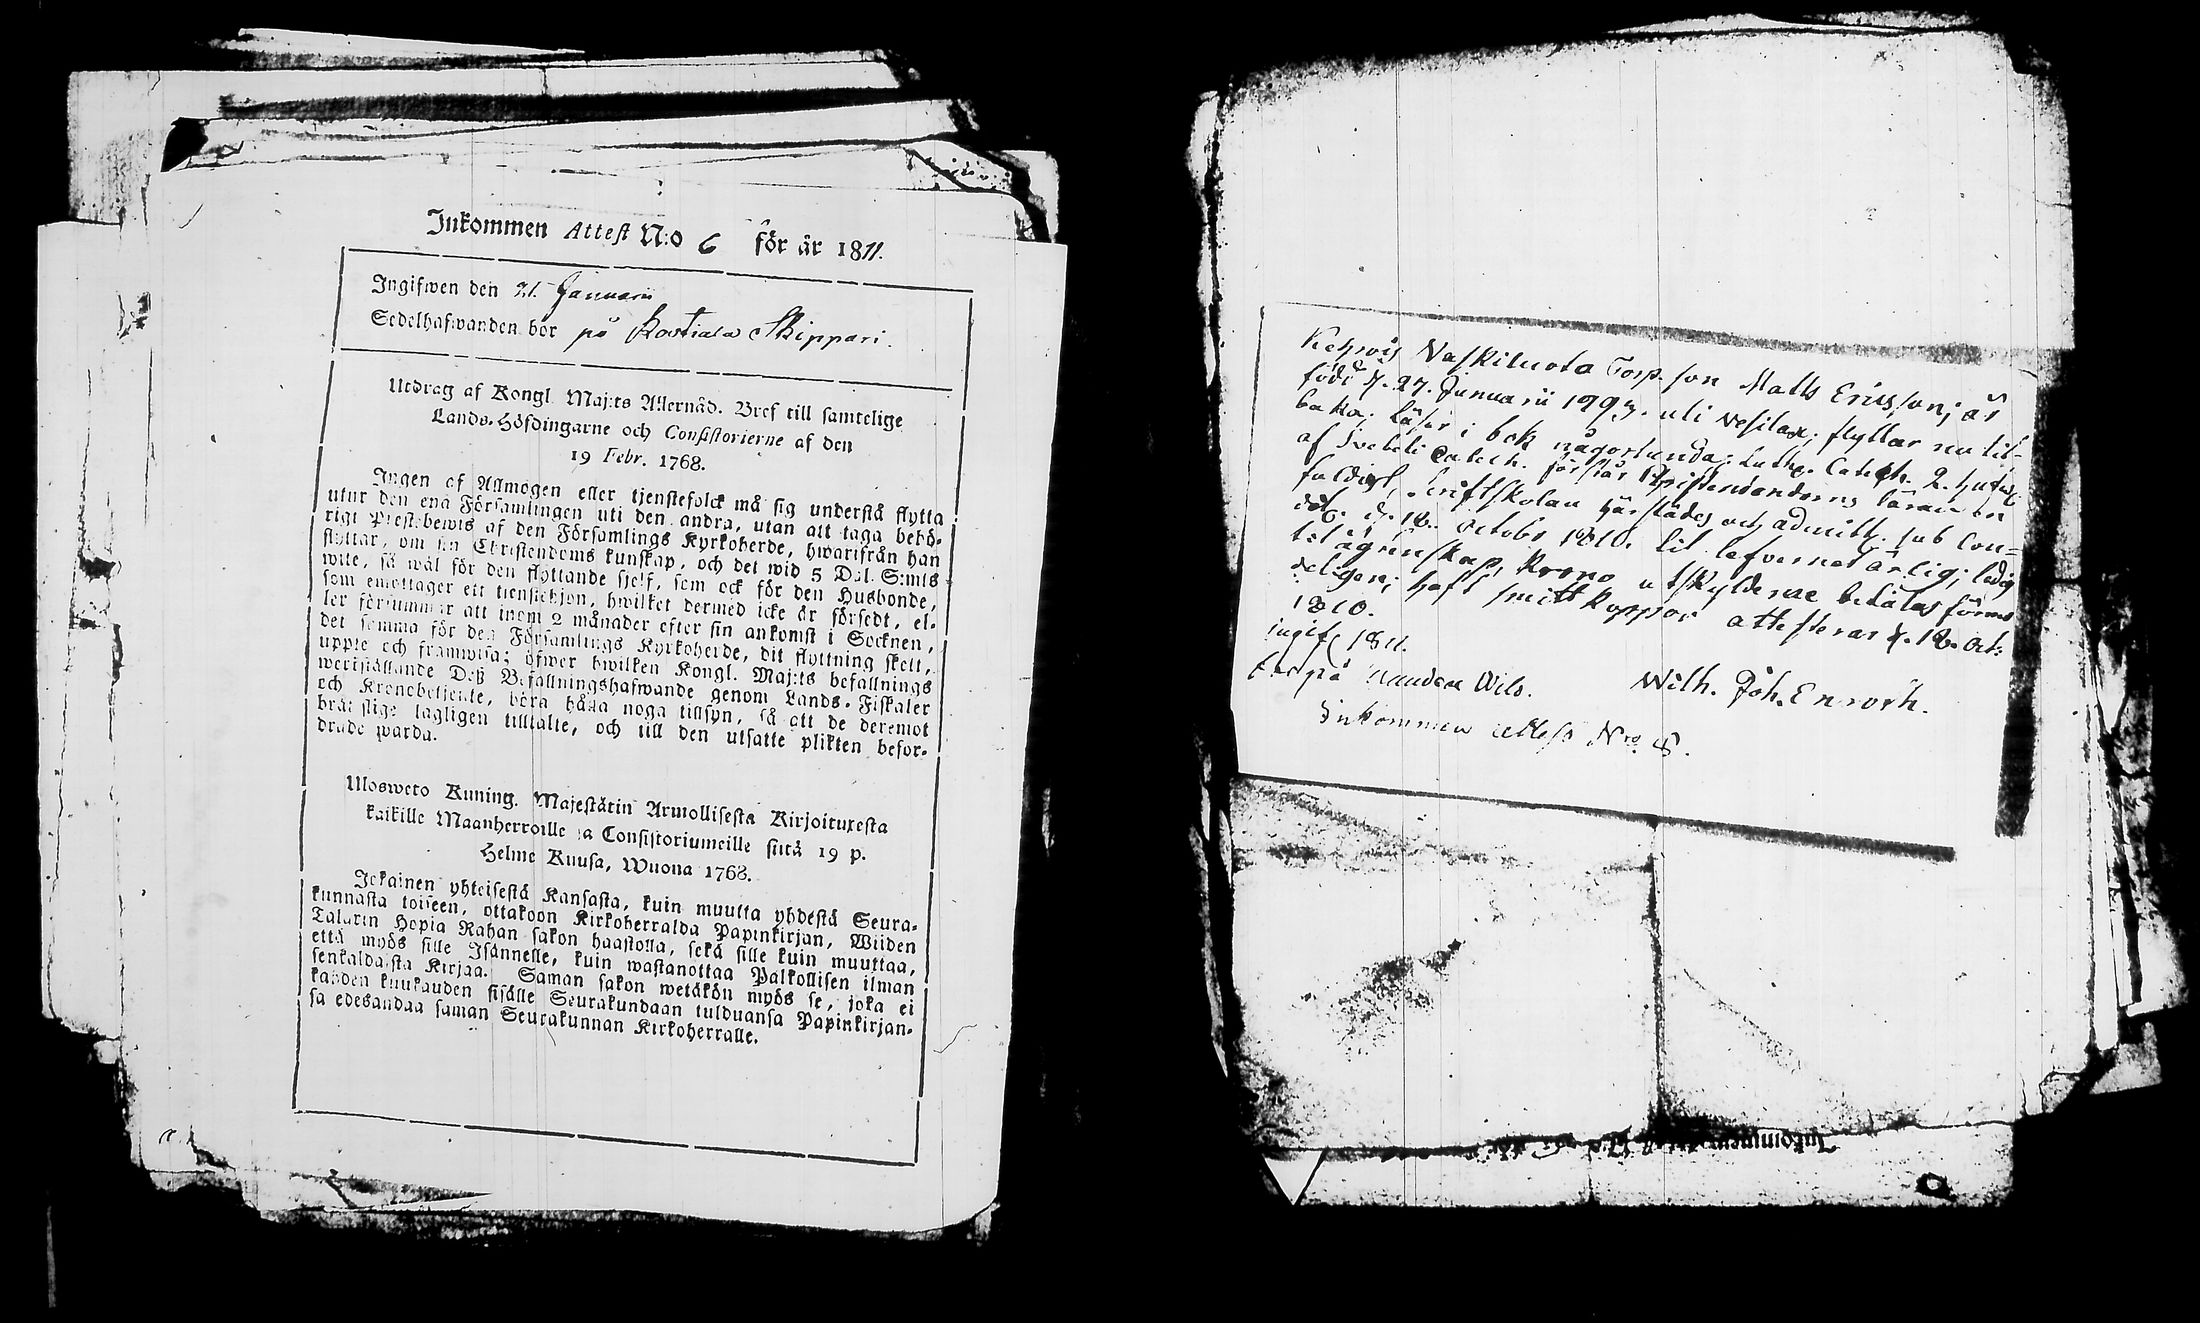 Inkommen Attest N:o 6 för år 1811.
Ingifwen den 21. Januarii
Sedelhafwanden bor på Skippari.
Utdrag af Kongl. Maj:ts Allernåd. Bref till samtelige
Lands-Höfdingarne och Consistorierne af den
19 Febr. 1768.
Ingen af Allmogen eller tjenstefolck må sig understå flytta
utur den ena Församlingen uti den andra, utan att taga behö-
rigt Prestebewis af den Församlings Kyrkoherde, hwarifrån han
flyttar, om sin Christendoms kunskap, och det wid 5 Dal. S:mts
wite, så wäl för den flyttande sjelf, som ock för den Husbonde,
som emottager ett tienstehjon, hwilket dermed icke är försedt, el-
ler försummar att inom 2 månader efter sin ankomst i Socknen,
det samma för den Församlings Kyrkoherde, dit flyttning skett,
uppte och framwisa; öfwer hwilken Kongl. Maj:ts befallnings
werkställande Deß Befallningshafwande genom Lands-Fiskaler
och Kronobetjente, böra hålla noga tillsyn, så att de deremot
bråtslige lagligen tilltalte, och till den utsatte plikten befor-
drade warda.
Ulosweto Kuning. Majestätin Armollisesta Kirjoituxesta
kaikille Maanherroille ja Consistoriumeille siitä 19 p.
Helme Kuusa, Wuona 1768.
Jokainen yhteisestä Kansasta, kuin muutta yhdestä Seura-
kunnasta toiseen, ottakoon Kirkoherralda Papinkirjan, Wiiden
Talarin Hopia Rahan sakon haastolla, sekä sille kuin muuttaa,
että myös sille Isännelle, kuin wastanottaa Palkollisen ilman
senkaldaista Kirjaa. Saman sakon wetäkön myös se, joka ei
kahden kuukauden sisälle Seurakundaan tulduansa Papinkirjan-
sa edesandaa saman Seurakunnan Kirkoherralle.
Naskiluota Torp. son Matts Ericsson; är
född d. 27. Januarii uti Nesilax; flyttar nu til-
baka; läser i bok någorlunda; Luthe. Catech. 2. hufw.
af Svebeli Catech. förstår Christendomens läran en
faldigt, Skriftskolan härstädes och admitt. sub Con-
dit. d. 18. octobr 1810. til lefvernet ärlig; ledig
til ägtenskap, Krono utskylderne betälas förme
deligen; haft smittkoppor attesterar d. 18. Oct:
1810.
ingif 1811.
Wilh. Joh. Enroth.
Inkommen attest Nro 8.
Inkommen